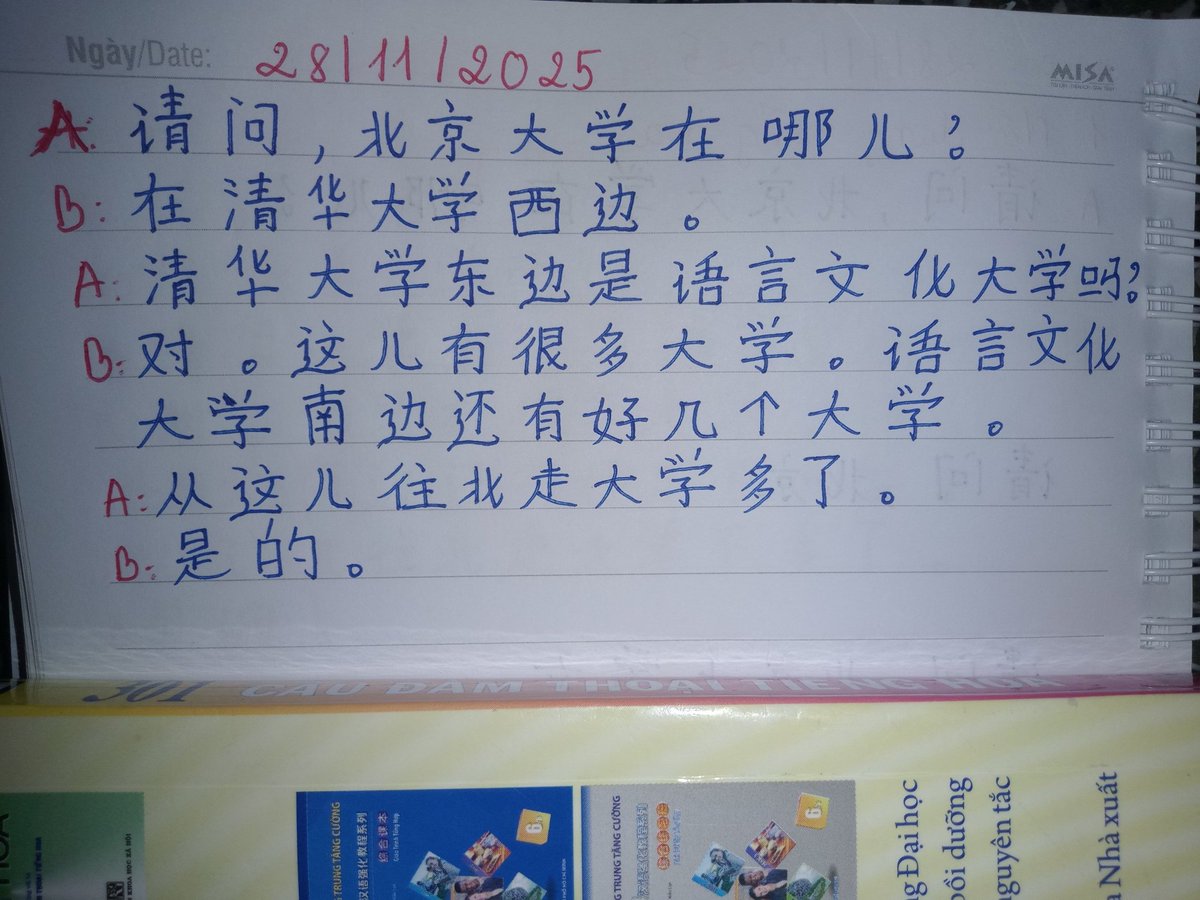 Ngày/Date: 28/11/2025
MISA
A: 请问,北京大学在哪儿?
B: 在清华大学西边。
A: 清华大学东边是语言文化大学吗?
B: 对。这儿有很多大学。语言文化
大学南边还有好几个大学。
A: 从这儿往北走大学多了。
B: 是的。
301 CÂU ĐÀM THOẠI TIẾNG HOA
HOA
TRUNG TĂNG CƯỜNG
汉语强化教程系列
综合课本
6
TRUNG TĂNG CƯỜNG
6
g Đại học
bồi dưỡng
nguyên tắc
Nhà xuất